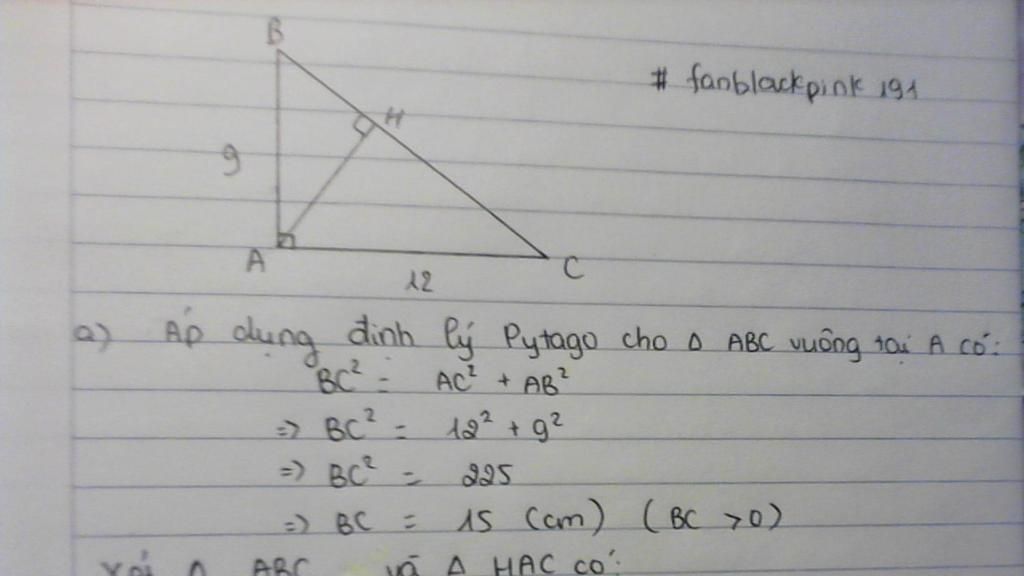 B
# fanblackpink 191
H
9
A
12
C
a) Áp dụng định lý Pytago cho Δ ABC vuông tại A có:
BC² = AC² + AB²
=> BC² = 12² + 9²
=> BC² = 225
=> BC = 15 (cm) (BC > 0)
Xét Δ ABC và Δ HAC có: